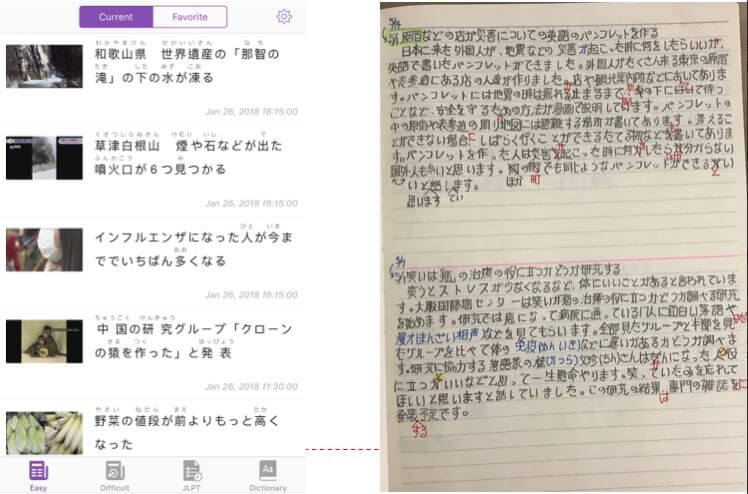 Current
Favorite
わかやまけん せかいいさん なち
和歌山県 世界遺産の「那智の
たき した みず こお
滝」の下の水が凍る
Jan 26, 2018 16:15:00
くさつしらねさん けむり いし で
草津白根山 煙や石などが出た
ふんかこう み
噴火口が6つ見つかる
Jan 26, 2018 16:15:00
ひと いま
インフルエンザになった人が今ま
おお
ででいちばん多くなる
Jan 26, 2018 16:15:00
ちゅうごく けんきゅう
中国の研究グループ「クローン
さる つく はっぴょう
の猿を作った」と発表
Jan 26, 2018 11:30:00
やさい ねだん まえ たか
野菜の値段が前よりもっと高く
なった
Easy
Difficult
JLPT
Dictionary
原宿などの店が災害についての英語のパンフレットを作る
日本に来た外国人が、地震などの災害が起こった時に何をしたらいいか、
英語で書いたパンフレットができました。外国人がたくさん来る東京の原宿
や表参道にある店の人達が作りました。店や観光案内所などにおいてありま
す。パンフレットには地震の時は揺れる止まるまで、 の下に いて待つ
ことなど、安全を守るための方法が漫画で説明しています。パンフレットの
中の原宿や表参道の周り地図には避難する場所が書いてあります。
とができない場合 しばらく行くことができるたて物などを書いてありま
す。パンフレットを作った人は災害を起こった時に何 したら 分からない
国外人も いと思います。 の でも同じようなパンフレットができる いい
いと話します。
ほか 町
思います てい
笑いは「癌」の治療の役に立つかどうか研究する
笑うとストレスがうなくなるなど、体にいいことがあると言われていま
す。大阪国際癌センターは笑いが癌の治療の役に立つかどうか調べる研究
を始めます。研究では癌になって病院に通っている 人に面白い落語や
漫才(まんざい)相声などを見てもらいます。全部見たグループと半部を見
たグループを比べて体の免疫(めんいき)などに違いがあるかどうか調べま
す。研究に協力する落語家の桂(かつら)文珍(ちん)さんはがんになった人の役
に立つ がいいなどと思って一生懸命やります。笑って、いたみを忘れて
ほしいと思いますと話していました。この研究の結果 専門の雑誌を に
発表予定です。
は
する